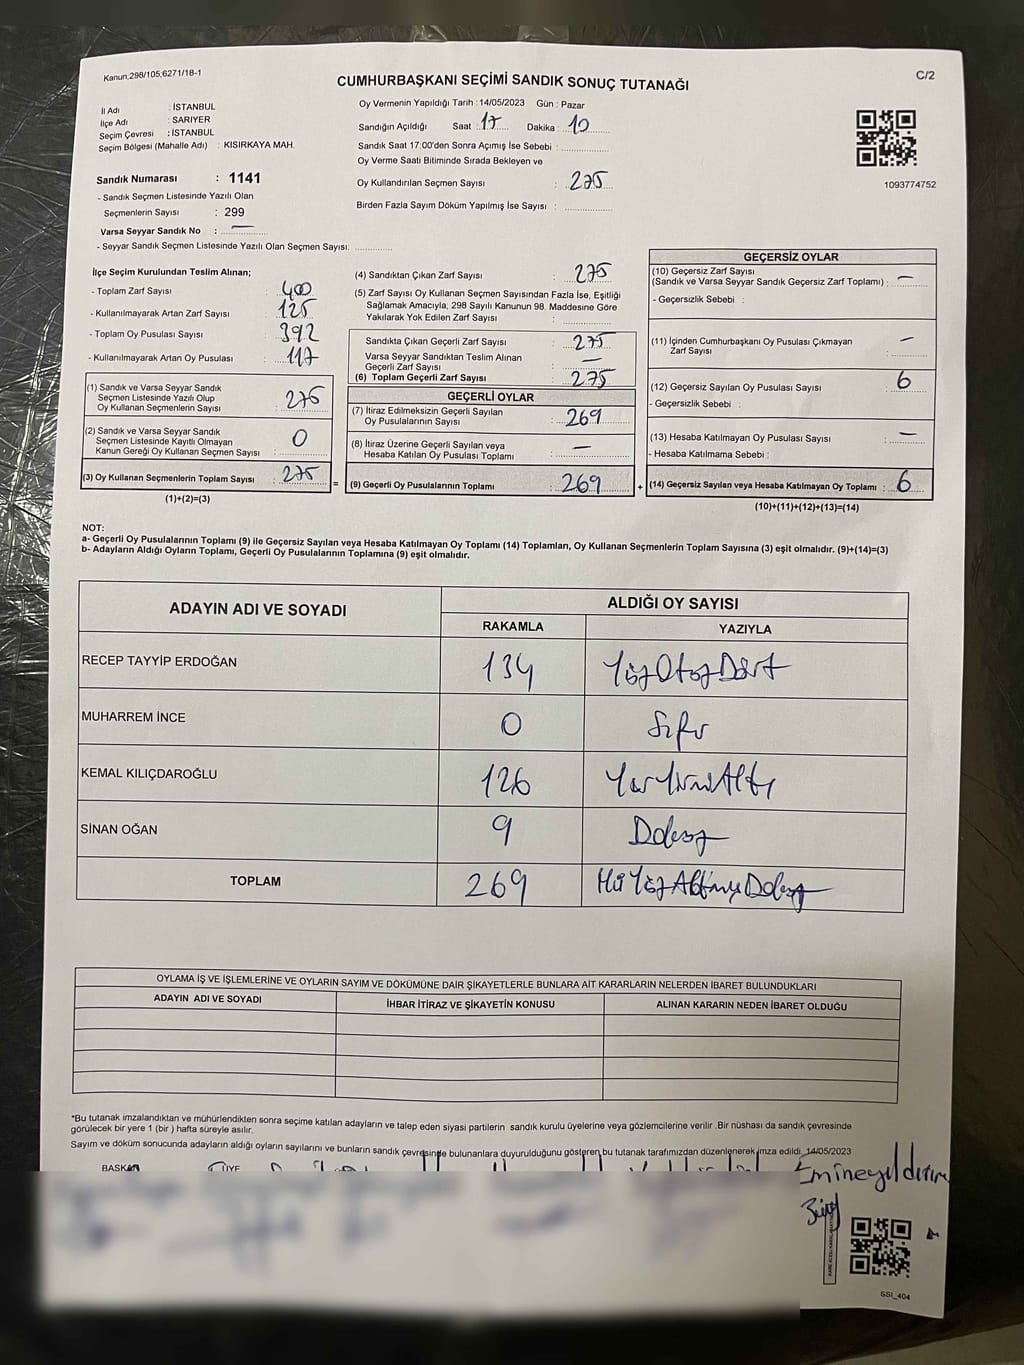 Kanun;298/105;6271/18-1
C/2
CUMHURBAŞKANI SEÇİMİ SANDIK SONUÇ TUTANAĞI
İl Adı : İSTANBUL
İlçe Adı : SARIYER
Seçim Çevresi : İSTANBUL
Seçim Bölgesi (Mahalle Adı) : KISIRKAYA MAH.
Oy Vermenin Yapıldığı Tarih : 14/05/2023 Gün : Pazar
Sandığın Açıldığı Saat : 17 Dakika : 10
Sandık Saat 17:00'den Sonra Açımış İse Sebebi :
Oy Verme Saati Bitiminde Sırada Bekleyen ve
Oy Kullandırılan Seçmen Sayısı : 275
Birden Fazla Sayım Döküm Yapılmış İse Sayısı :
1093774752
Sandık Numarası : 1141
- Sandık Seçmen Listesinde Yazılı Olan
Seçmenlerin Sayısı : 299
Varsa Seyyar Sandık No : —
- Seyyar Sandık Seçmen Listesinde Yazılı Olan Seçmen Sayısı:
İlçe Seçim Kurulundan Teslim Alınan;
- Toplam Zarf Sayısı : 400
- Kullanılmayarak Artan Zarf Sayısı : 125
- Toplam Oy Pusulası Sayısı : 392
- Kullanılmayarak Artan Oy Pusulası : 117
(1) Sandık ve Varsa Seyyar Sandık
Seçmen Listesinde Yazılı Olup
Oy Kullanan Seçmenlerin Sayısı : 275
(2) Sandık ve Varsa Seyyar Sandık
Seçmen Listesinde Kayıtlı Olmayan
Kanun Gereği Oy Kullanan Seçmen Sayısı : 0
(3) Oy Kullanan Seçmenlerin Toplam Sayısı : 275
(1)+(2)=(3)
(4) Sandıktan Çıkan Zarf Sayısı : 275
(5) Zarf Sayısı Oy Kullanan Seçmen Sayısından Fazla İse, Eşitliği
Sağlamak Amacıyla, 298 Sayılı Kanunun 98. Maddesine Göre
Yakılarak Yok Edilen Zarf Sayısı :
Sandıkta Çıkan Geçerli Zarf Sayısı : 275
Varsa Seyyar Sandıktan Teslim Alınan
Geçerli Zarf Sayısı : —
(6) Toplam Geçerli Zarf Sayısı : 275
GEÇERLİ OYLAR
(7) İtiraz Edilmeksizin Geçerli Sayılan
Oy Pusulasının Sayısı : 269
(8) İtiraz Üzerine Geçerli Sayılan veya
Hesaba Katılan Oy Pusulası Toplamı : —
= (9) Geçerli Oy Pusulalarının Toplamı : 269
GEÇERSİZ OYLAR
(10) Geçersiz Zarf Sayısı
(Sandık ve Varsa Seyyar Sandık Geçersiz Zarf Toplamı) : —
- Geçersizlik Sebebi :
(11) İçinden Cumhurbaşkanı Oy Pusulası Çıkmayan
Zarf Sayısı : —
(12) Geçersiz Sayılan Oy Pusulası Sayısı : 6
- Geçersizlik Sebebi :
(13) Hesaba Katılmayan Oy Pusulası Sayısı : —
- Hesaba Katılmama Sebebi :
+ (14) Geçersiz Sayılan veya Hesaba Katılmayan Oy Toplamı : 6
(10)+(11)+(12)+(13)=(14)
NOT:
a- Geçerli Oy Pusulalarının Toplamı (9) ile Geçersiz Sayılan veya Hesaba Katılmayan Oy Toplamı (14) Toplamları, Oy Kullanan Seçmenlerin Toplam Sayısına (3) eşit olmalıdır. (9)+(14)=(3)
b- Adayların Aldığı Oyların Toplamı, Geçerli Oy Pusulalarının Toplamına (9) eşit olmalıdır.
ADAYIN ADI VE SOYADI
ALDIĞI OY SAYISI
RAKAMLA YAZIYLA
RECEP TAYYİP ERDOĞAN 134 Yüz Otuz Dört
MUHARREM İNCE 0 Sıfır
KEMAL KILIÇDAROĞLU 126 Yüz Yirmi Altı
SİNAN OĞAN 9 Dokuz
TOPLAM 269 İki Yüz Altmış Dokuz
OYLAMA İŞ VE İŞLEMLERİNE VE OYLARIN SAYIM VE DÖKÜMÜNE DAİR ŞİKAYETLERLE BUNLARA AİT KARARLARIN NELERDEN İBARET BULUNDUKLARI
ADAYIN ADI VE SOYADI İHBAR İTİRAZ VE ŞİKAYETİN KONUSU ALINAN KARARIN NEDEN İBARET OLDUĞU
*Bu tutanak imzalandıktan ve mühürlendikten sonra seçime katılan adayların ve talep eden siyasi partilerin sandık kurulu üyelerine veya gözlemcilerine verilir .Bir nüshası da sandık çevresinde
görülecek bir yere 1 (bir ) hafta süreyle asılır.
Sayım ve döküm sonucunda adayların aldığı oyların sayılarını ve bunların sandık çevresinde bulunanlara duyurulduğunu gösteren bu tutanak tarafımızdan düzenlenerek imza edildi. 14/05/2023
BAŞKAN ÜYE
Emine yıldırım
SSI_404